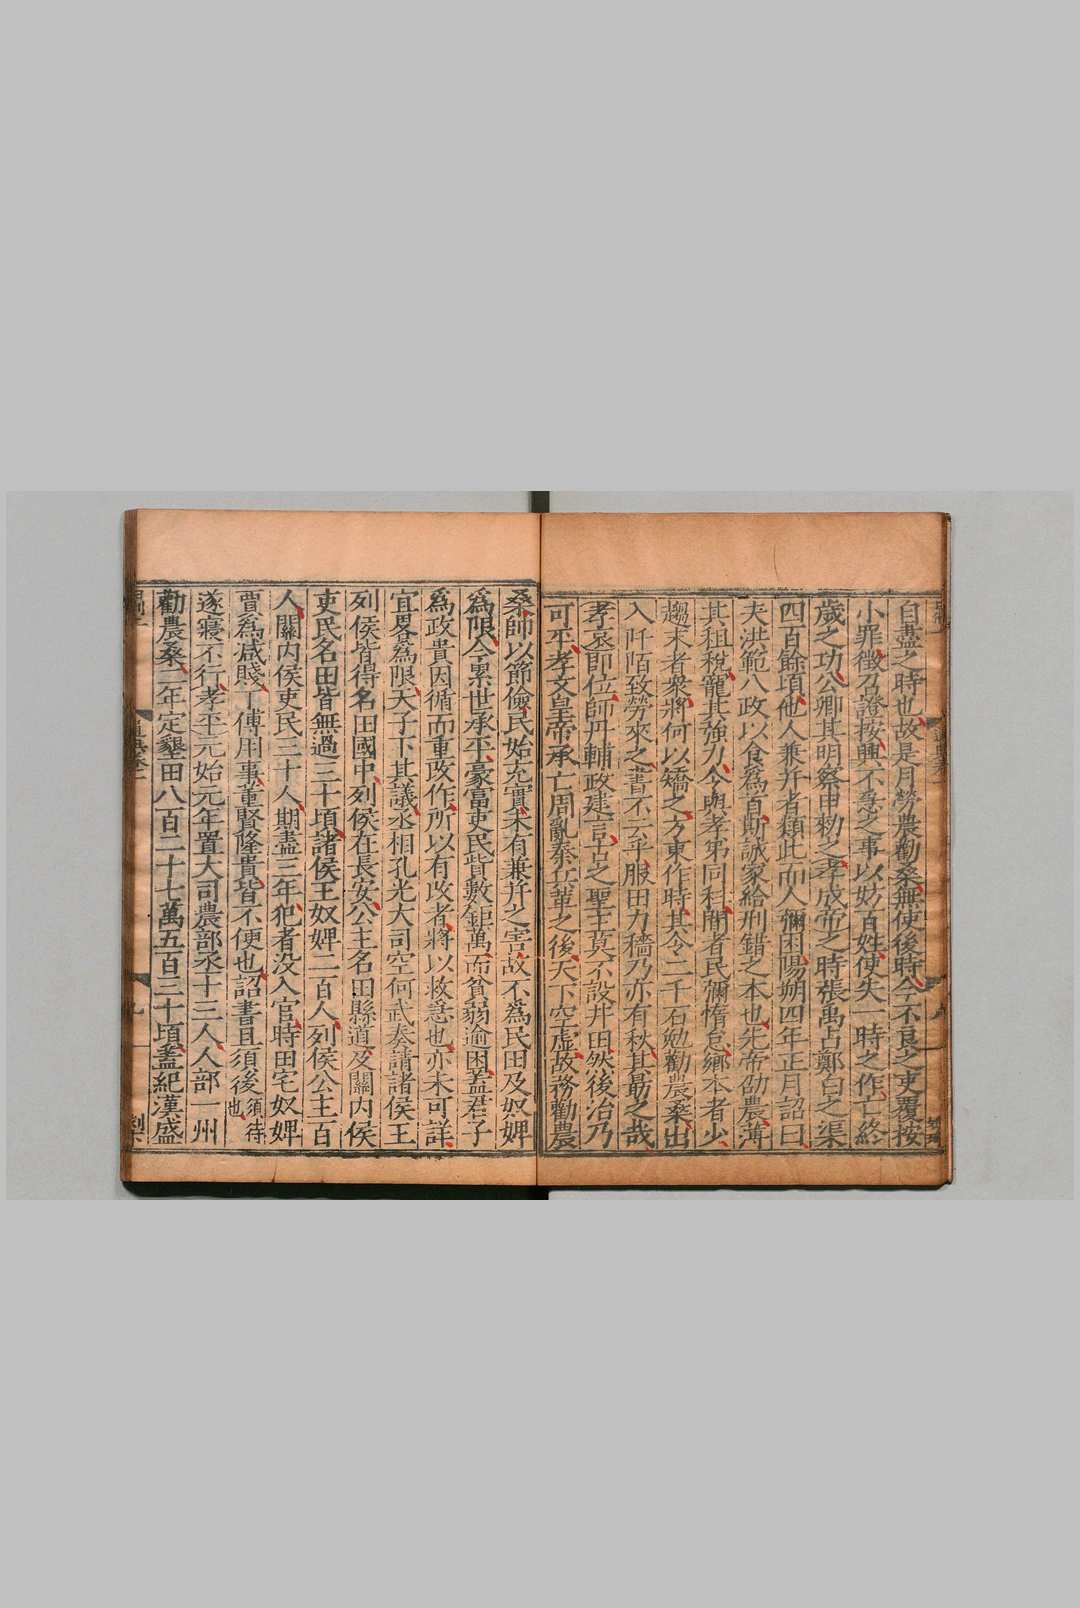 自盡之時也故是月勞農勸桑無使後時今不良之吏覆按
小罪徵召證按興不急之事以妨百姓使失一時之作亡終
歲之功公卿其明察申勑之孝成帝之時張禹占鄭白之渠
四百餘頃他人兼并者類此而人彌困陽朔四年正月詔曰
夫洪範八政以食爲首斯誠家給刑錯之本也先帝劭農薄
其租稅寵其強力令與孝弟同科閒者民彌惰怠鄉本者少
趨末者衆將何以矯之方東作時其令二千石勉勸農桑出
入阡陌致勞來之書不云乎服田力穡乃亦有秋其勗之哉
孝哀即位師丹輔政建言古之聖王莫不設井田然後治乃
可平孝文皇帝承亡周亂秦兵革之後天下空虛故務勸農
桑師以節儉民始充實未有兼并之害故不爲民田及奴婢
爲限今累世承平豪富吏民貲數鉅萬而貧弱逾困蓋君子
爲政貴因循而重改作所以有改者將以救急也亦未可詳
宜畧爲限天子下其議丞相孔光大司空何武奏請諸侯王
列侯皆得名田國中列侯在長安公主名田縣道及關內侯
吏民名田皆無過三十頃諸侯王奴婢二百人列侯公主百
人關內侯吏民三十人期盡三年犯者没入官時田宅奴婢
賈爲減賤丁傅用事董賢隆貴皆不便也詔書且須後須待也
遂寢不行孝平元始元年置大司農部丞十三人人部一州
勸農桑二年定墾田八百二十七萬五百三十頃蓋紀漢盛